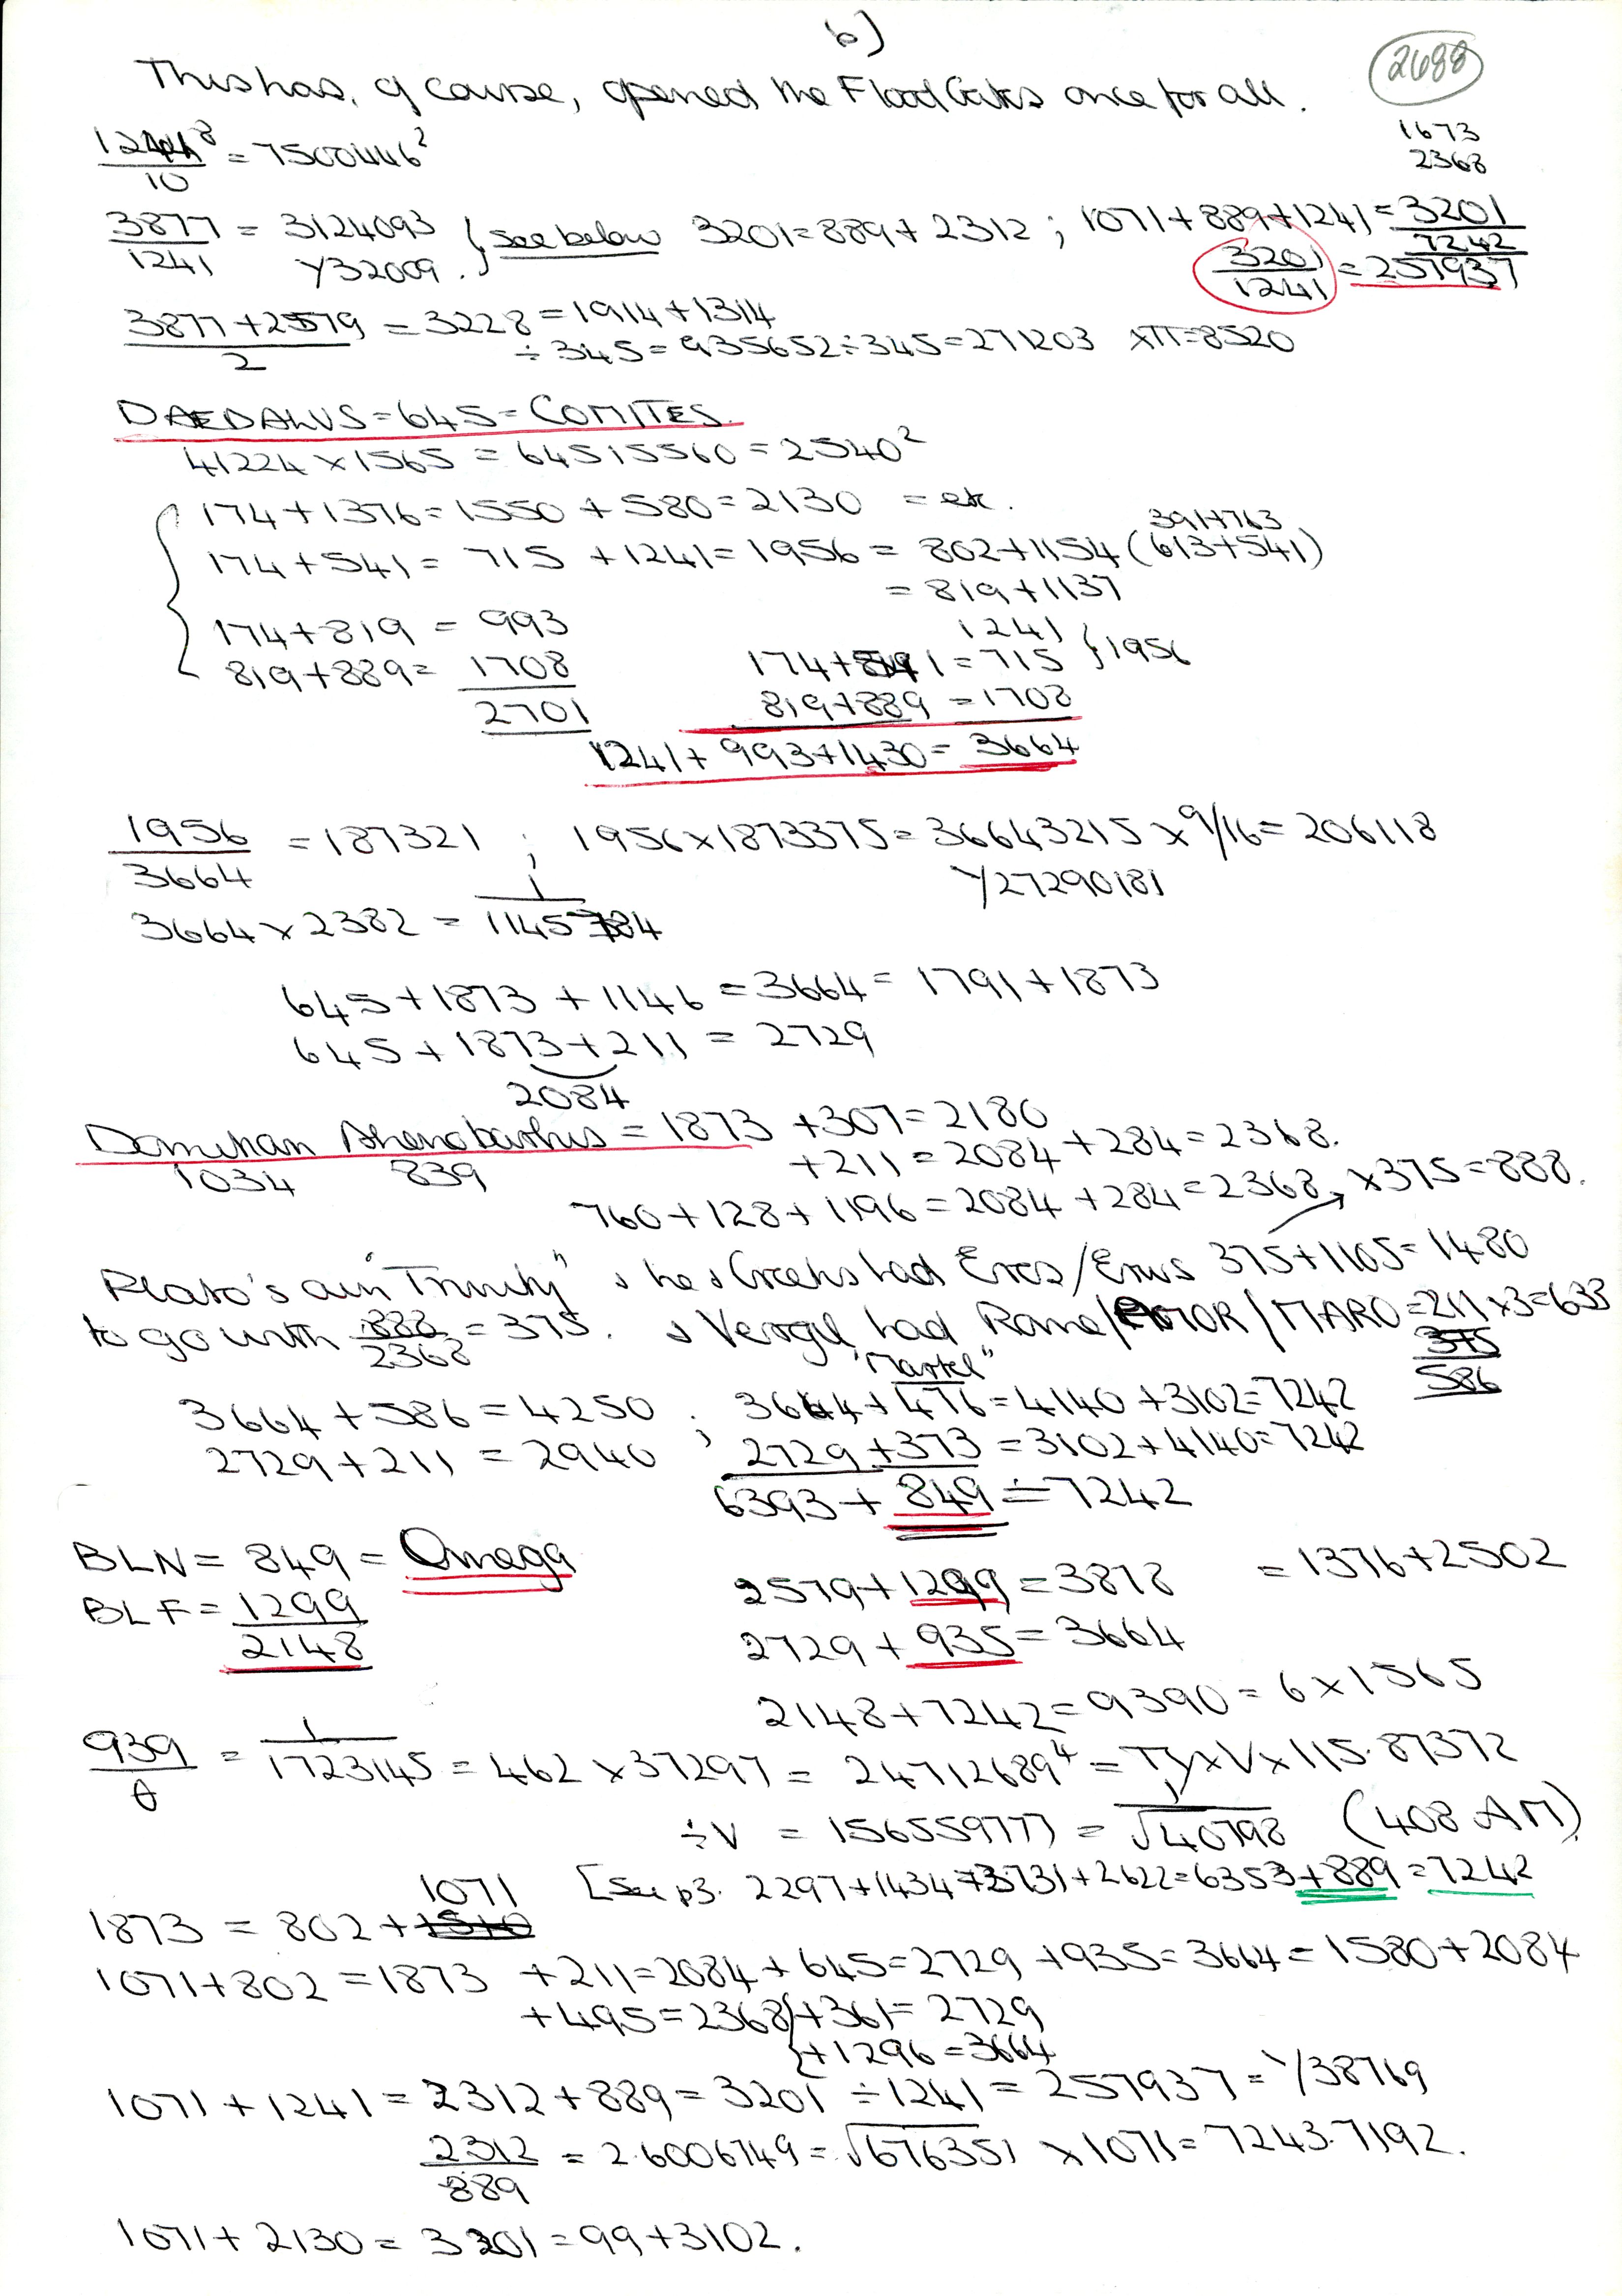 6)
2688
This has, of course, opened the Flood Gates once for all.
1673
2368
1241⁸/10 = 7500446²
3877/1241 = 3124093 } see below 3201=889+2312 ; 1071+889+1241=3201
Y32009.
7242
3201/1241 = 257937
3877+2579/2 = 3228 = 1914+1314
÷345=935652÷345=271203 xπ=8520
DAEDALUS=645=COMITES.
41224x1565 = 64515560=2540²
174+1376=1550+580=2130 = etc.
391+763
174+541= 715 +1241=1956= 802+1154(613+541)
= 819+1137
174+819 = 993
1241
819+889= 1708
174+541=715 }1956
2701
819+889 =1708
1241+993+1430= 3664
1956/3664 = 187321 ; 1956x1873375=36643215 x9/16=206118
Y27290181
3664x2382 = 1/1145784
645+1873+1146=3664=1791+1873
645+1873+211 = 2729
2084
Domitian Ahenobarbus = 1873 +307=2180
1034 839
+211=2084+284=2368.
760+128+1196=2084+284=2368, x375=888.
Plato's own "Trinity" & the Greeks had Eros/Erus 375+1105=1480
to go with 888/2368=375. & Vergil had Rome/AMOR/MARO=211x3=633
375
586
"Martel"
3664+586=4250 ; 3664+476=4140+3102=7242
2729+211=2940 2729+373=3102+4140=7242
6393+849=7242
BLN= 849= Omega
BLF= 1299
2148
2579+1299=3878 =1376+2502
2729+935=3664
2148+7242=9390=6x1565
939/θ = 1/1723145=462x37297= 24712689⁴=TyxVx115.87372
÷V = 156559777=1/√40798 (408 AM)
[See p3. 2297+1434=3731+2622=6353+889=7242
1071
1873 = 802+
1071+802=1873 +211=2084+645=2729+935=3664=1580+2084
+495=2368{+361= 2729
{+1296=3664
1071+1241=2312+889=3201÷1241=257937=Y38769
2312/889 = 2.6006749=√676351 x1071=7243.7192.
1071+2130=3201=99+3102.